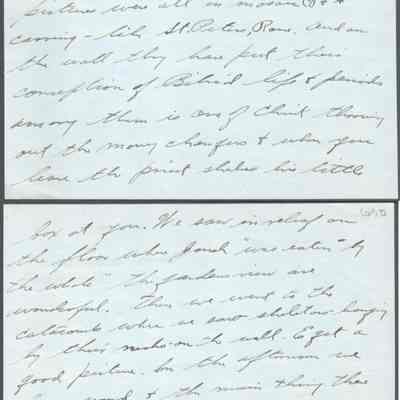 pictures were all in mosaic & 
carving - like St. Peters, Rome. And on
the wall they have put their
conception of Biblical life & periods
among them is one of Christ throwing
out the money changers & when you
leave the priest shakes his little
box at you. We saw in relief on
the floor where Jonah "was eaten" by
the whale" the gardens view are
wonderful. Then we went to the
catacombs where we saw skeletons hanging
by their necks on the wall. E got a
good picture. In the afternoon we
& the main thing there